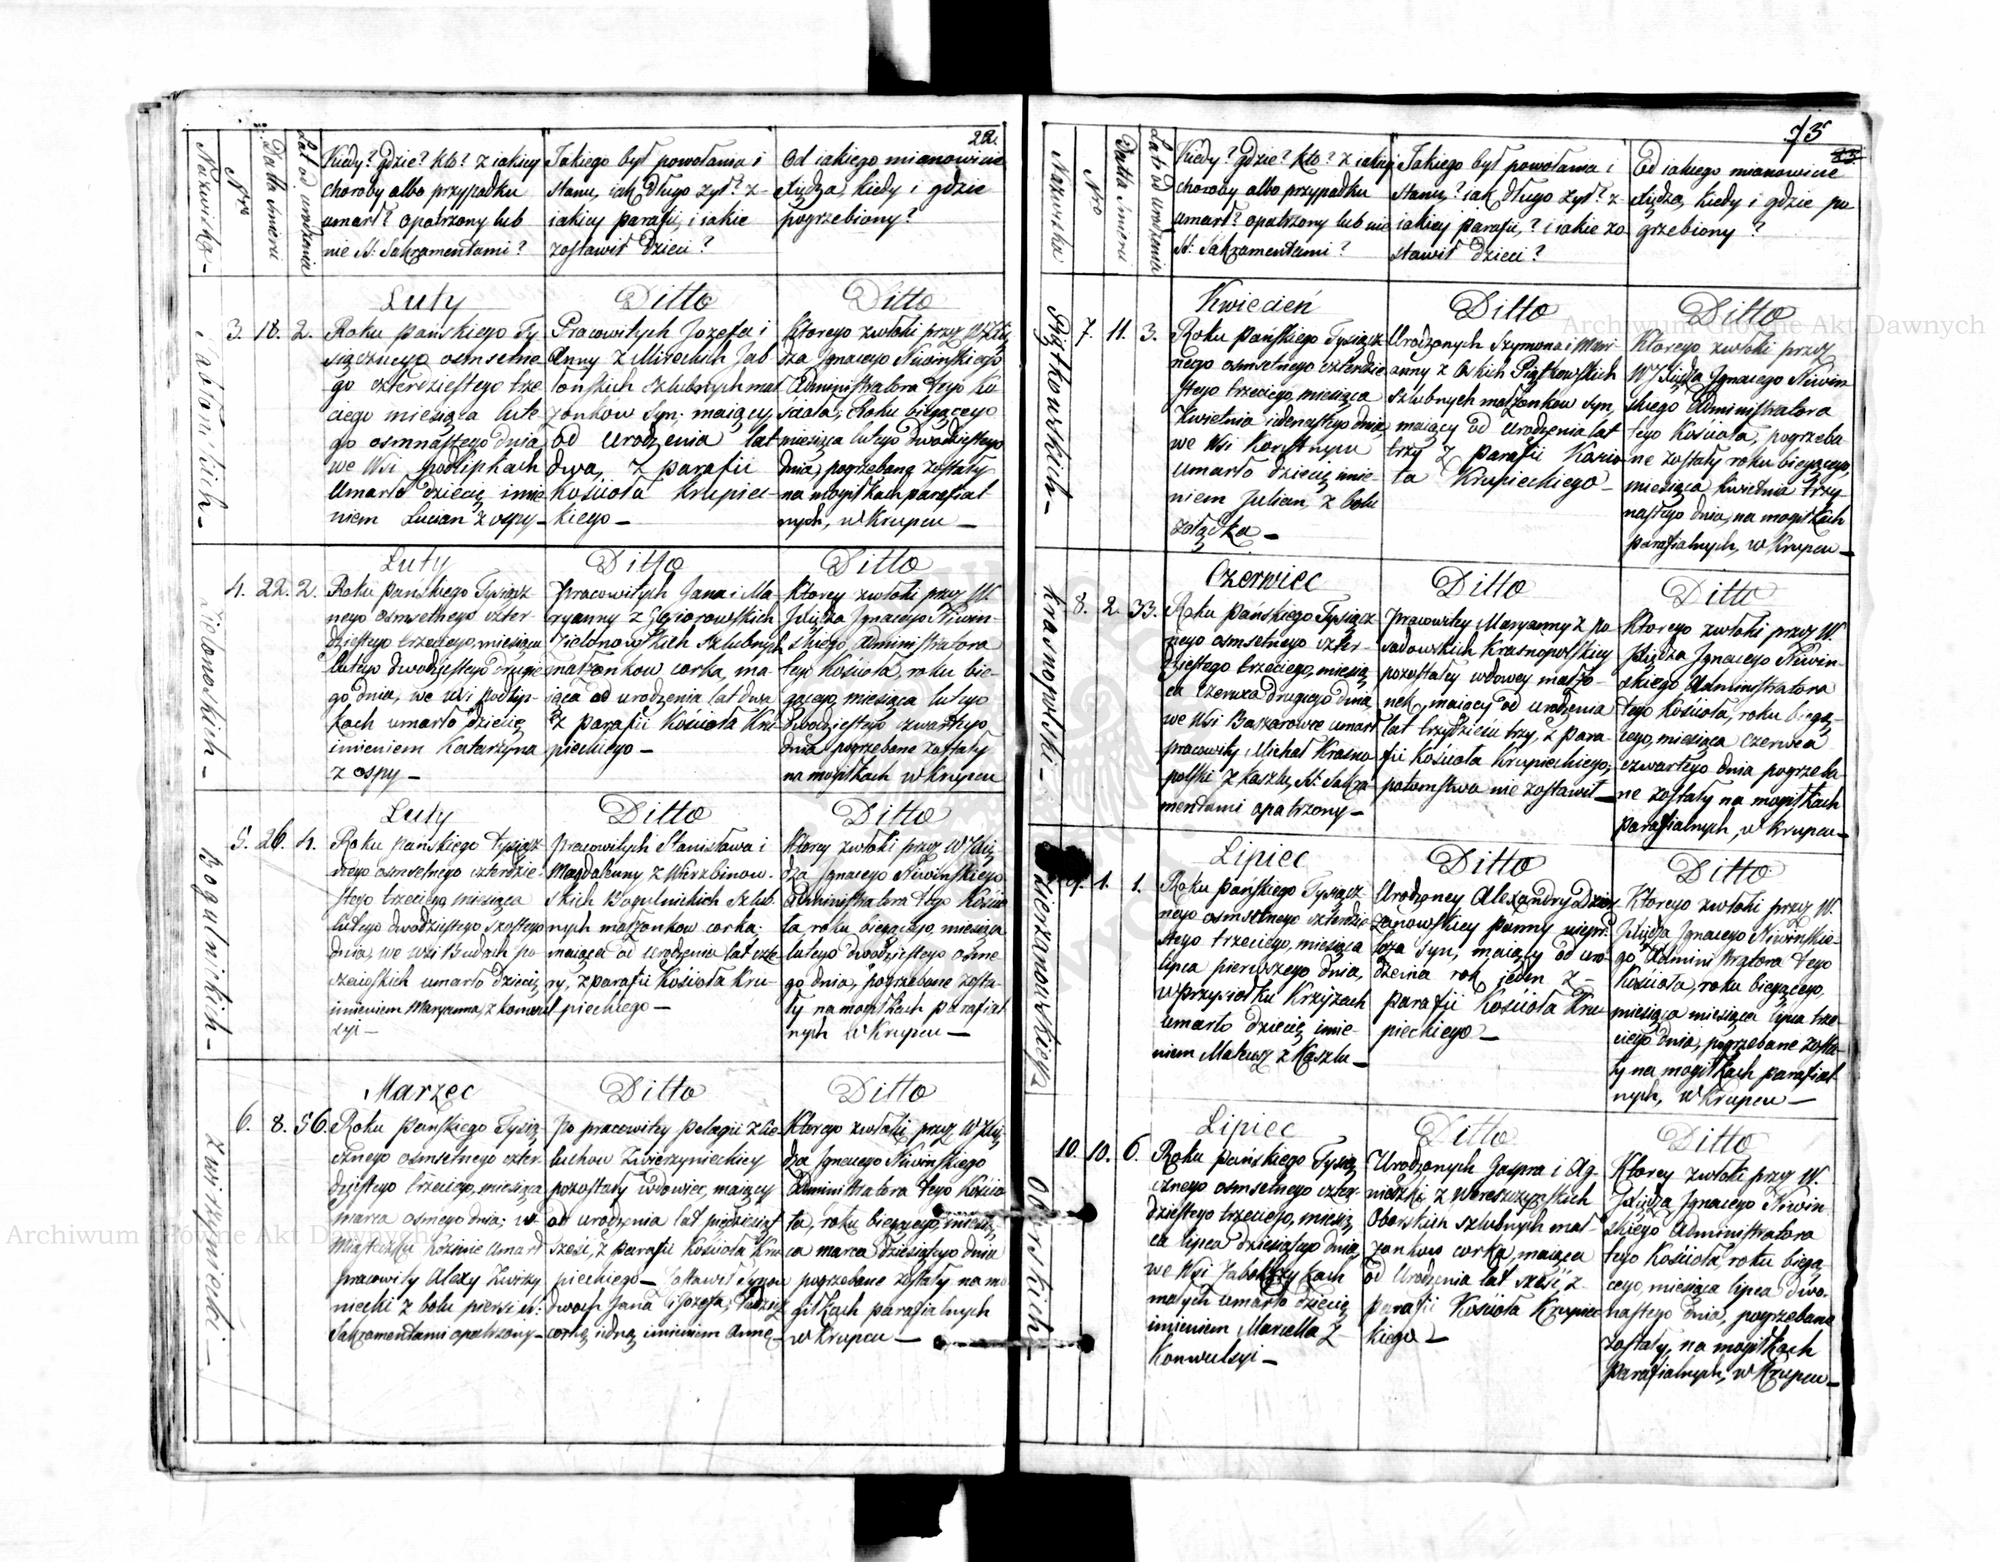 22.
Nazwisko
Nro
Datta Śmierci
Lat od urodzenia
Kiedy? gdzie? kto? z iakiey
choroby albo przypadku
umarł? opatrzony lub
nie SS: Sakramentami?
Jakiego był powołania i
stanu, iak długo żył? z
iakiey parafii, i iakie
zostawił dzieci?
Od iakiego mianowicie
Xiędza, kiedy i gdzie
pogrzebiony?
Jabłońskich
3. 18. 2.
Luty
Roku pańskiego Ty
siącznego osmsetne
go czterdziestego trze
ciego miesiąca lute
go osmnastego dnia,
we Wsi Podlipkach
Umarło dziecię imie
niem Lucian z ospy
Ditto
Pracowitych Jozefa i
Anny z Mirockich Jab
łońskich szlubnych mał
żonków Syn, maiący
od urodzenia lat
dwa, z parafii
Kościoła Krupiec-
kiego
Ditto
Ktorego zwłoki przez WXię
dza Ignacego Niwinskiego
Administratora tego Ko
ścioła, Roku bieżącego
miesiąca lutego dwudziestego
dnia, pogrzebane zostały
na mogiłkach parafial
nych, w Krupcu
Zielonoskich
4. 22. 2.
Luty
Roku Pańskiego Tysiącz
nego osmsetnego czter
dziestego trzeciego, miesiąca
lutego dwudziestego drugie
go dnia, we Wsi Podlip
kach umarło dziecię
imieniem Katarzyna
z ospy
Ditto
Pracowitych Jana i Ma
ryanny z Gąsiorowskich
Zielonowskich szlubnych
małżonkow corka, ma
iąca od urodzenia lat dwa
z parafii Kościoła Kru
pieckiego
Ditto
Ktorey zwłoki przez W.
Xiędza Ignacego Niwin-
skiego, Administratora
tego Kościoła, roku bie-
żącego, miesiąca lutego
dwudziestego czwartego
dnia pogrzebane zostały
na mogiłkach w Krupcu
Bogulnickich
5. 26. 4.
Luty
Roku Pańskiego tysiącz
nego osmsetnego czterdzie
stego trzeciego, miesiąca
lutego dwudziestego szostego
dnia, we wsi Budach po
czaiowskich umarło dziecię
imieniem Maryanna, z konwul
syi
Ditto
Pracowitych Stanisława i
Magdalenny z Wierzbinow
skich Bogulnickich szlub
nych małżonkow corka,
maiąca od urodzenia lat czte
ry, z parafii Kościoła Kru
pieckiego
Ditto
Ktorey zwłoki przez WXię
dza Ignacego Niwinskiego
Administratora tego Kościo
ła, roku bieżącego, miesiąca
lutego dwudziestego osme
go dnia, pogrzebane zosta
ły na mogiłkach parafial
nych w Krupcu
Zwirzyniecki
6. 8. 56.
Marzec
Roku Pańskiego Tysią
cznego osmsetnego czter
dziestego trzeciego, miesiąca
marca osmego dnia, w
Miasteczku Kozinie umarł
pracowity Alexy Zwirzy
niecki z bolu piersi SS:
Sakramentami opatrzony
Ditto
Po pracowitey Pelagii z Bie
luchow Zwierzynieckiey
pozostały wdowiec, maiący
od urodzenia lat pięćdziesiąt
sześć, z parafii Kościoła Kru
pieckiego Zostawił Synow
dwoch Jana i Jozefa, tudzież
corkę iedną imieniem Annę
Ditto
Ktorego zwłoki przez WXię
dza Ignacego Niwinskiego
Administratora tego Kościo
ła, roku bieżącego, miesią
ca marca dziesiątego dnia
pogrzebane zostały na mo
giłkach parafialnych
w Krupcu
73
23
Nazwiska
Nro
Datta Śmierci
Lat od urodzenia
Kiedy? gdzie? kto? z iakiey
choroby albo przypadku
umarł? opatrzony lub nie
SS. Sakramentami?
Jakiego był powołania i
stanu? iak długo żył? z
iakiey parafii,? i iakie zo
stawił dzieci?
Od iakiego mianowicie
Xiędza, kiedy i gdzie po
grzebiony?
Piątkowskich
7. 11. 3.
Kwiecień
Roku Pańskiego Tysiącz
nego osmsetnego czterdzie
stego trzeciego, miesiąca
Kwietnia iedenastego dnia,
we Wsi Korytnym
umarło dziecię imie-
niem Julian, z bolu
żołądka
Ditto
Urodzonych Szymona i Mary
anny z Oskich Piątkowskich
szlubnych małżonkow syn,
maiący od urodzenia lat
trzy z parafii Kościo
ła Krupieckiego
Ditto
Ktorego zwłoki przez
WXiędza Ignacego Niwin
skiego Administratora
tego Kościoła, pogrzeba
ne zostały roku bieżącego,
miesiąca kwietnia trzy-
nastego dnia, na mogiłkach
parafialnych, w Krupcu
Krasnopolski
8. 2. 33.
Czerwiec
Roku Pańskiego Tysiącz
nego osmsetnego czter-
dziestego trzeciego, miesią
ca Czerwca drugiego dnia,
we Wsi Bazarowce umarł
pracowity Michał Krasno
polski z kaszlu, SS. Sakra
mentami opatrzony
Ditto
Pracowitey Maryanny z Po
sadowskich Krasnopolskiey
pozostałey wdowey małżo-
nek, maiący od urodzenia
lat trzydzieści trzy, z para
fii Kościoła Krupieckiego,
potomstwa nie zostawił
Ditto
Ktorego zwłoki przez W.
Xiędza Ignacego Niwin-
skiego Administratora
tego Kościoła, roku bieżą-
cego, miesiąca czerwca
czwartego dnia pogrzeba
ne zostały na mogiłkach
parafialnych, w Krupcu
Dzierżanowskiey
9. 1. 1.
Lipiec
Roku Pańskiego Tysiącz
nego osmsetnego czterdzie
stego trzeciego, miesiąca
lipca pierwszego dnia,
w Przysiołku Krzyżach
umarło dziecię imie
niem Mateusz z Kaszlu
Ditto
Urodzoney Alexandry Dzier
żanowskiey panny niepr:
łoża syn, maiący od uro-
dzenia rok jeden z
parafii Kościoła Kru
pieckiego
Ditto
Ktorego zwłoki przez W.
Xiędza Ignacego Niwinskie-
go, Administratora tego
Kościoła, roku bieżącego,
miesiąca miesiąca lipca trze
ciego dnia, pogrzebane zosta-
ły na mogiłkach parafial
nych, w Krupcu
Oborskich
10. 10. 6.
Lipiec
Roku Pańskiego Tysią
cznego osmsetnego czter
dziestego trzeciego, miesią
ca lipca dziesiątego dnia,
we Wsi Jabołszykach
małych umarło dziecię
imieniem Marcella z
Konwulsyi
Ditto
Urodzonych Gaspra i Ag-
nieszki z Wereszczyńskich
Oborskich szlubnych mał
żonkow corka, maiąca
od Urodzenia lat sześć, z
parafii Kościoła Krupiec
kiego
Ditto
Ktorey zwłoki przez W.
Xiędza Ignacego Niwin
skiego Administratora
tego Kościoła, roku bieżą
cego, miesiąca lipca dwu-
nastego dnia, pogrzebane
zostały, na mogiłkach
parafialnych, w Krupcu
Archiwum Główne Akt Dawnych
Archiwum Główne Akt Dawnych